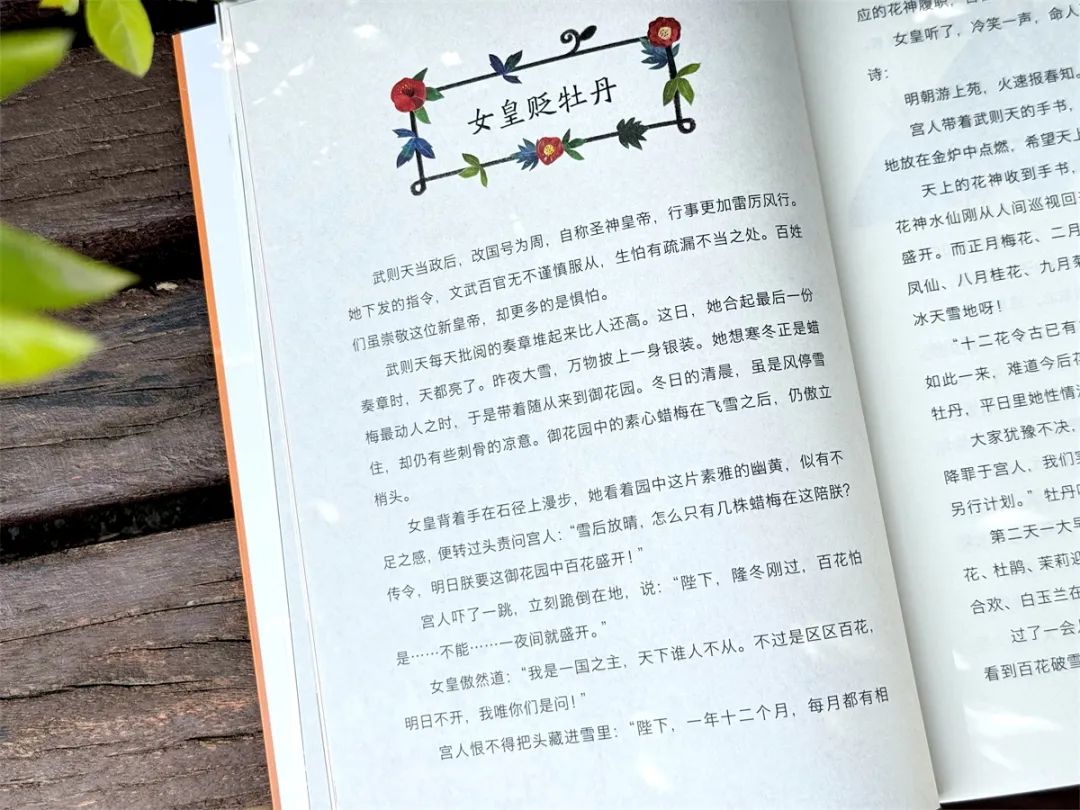 女皇贬牡丹
武则天当政后，改国号为周，自称圣神皇帝，行事更加雷厉风行。
她下发的指令，文武百官无不谨慎服从，生怕有疏漏不当之处。百姓
们虽崇敬这位新皇帝，却更多的是惧怕。
武则天每天批阅的奏章堆起来比人还高。这日，她合起最后一份
奏章时，天都亮了。昨夜大雪，万物披上一身银装。她想寒冬正是蜡
梅最动人之时，于是带着随从来到御花园。冬日的清晨，虽是风停雪
住，却仍有些刺骨的凉意。御花园中的素心蜡梅在飞雪之后，仍傲立
梢头。
女皇背着手在石径上漫步，她看着园中这片素雅的幽黄，似有不
足之感，便转过头责问宫人：“雪后放晴，怎么只有几株蜡梅在这陪朕？
传令，明日朕要这御花园中百花盛开！”
宫人吓了一跳，立刻跪倒在地，说：“陛下，隆冬刚过，百花怕
是……不能……一夜间就盛开。”
女皇傲然道：“我是一国之主，天下谁人不从。不过是区区百花，
明日不开，我唯你们是问！”
宫人恨不得把头藏进雪里：“陛下，一年十二个月，每月都有相
应的花神履职，
女皇听了，冷笑一声，命人
诗：
明朝游上苑，火速报春知。
宫人带着武则天的手书，
地放在金炉中点燃，希望天上
天上的花神收到手书，
花神水仙刚从人间巡视回
盛开。而正月梅花、二月
凤仙、八月桂花、九月菊
冰天雪地呀！
“十二花令古已有
如此一来，难道今后花
牡丹，平日里她性情
大家犹豫不决，
降罪于宫人，我们
另行计划。”牡丹
第二天一大早
花、杜鹃、茉莉迎
合欢、白玉兰在
过了一会
看到百花破雪